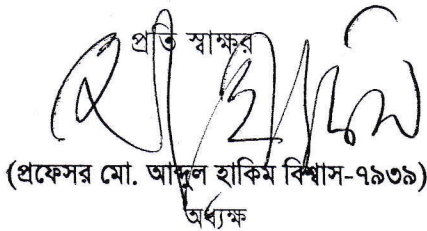 প্রতি স্বাক্ষর
(প্রফেসর মো. আব্দুল হাকিম বিশ্বাস-৭৯৩৯)
অধ্যক্ষ